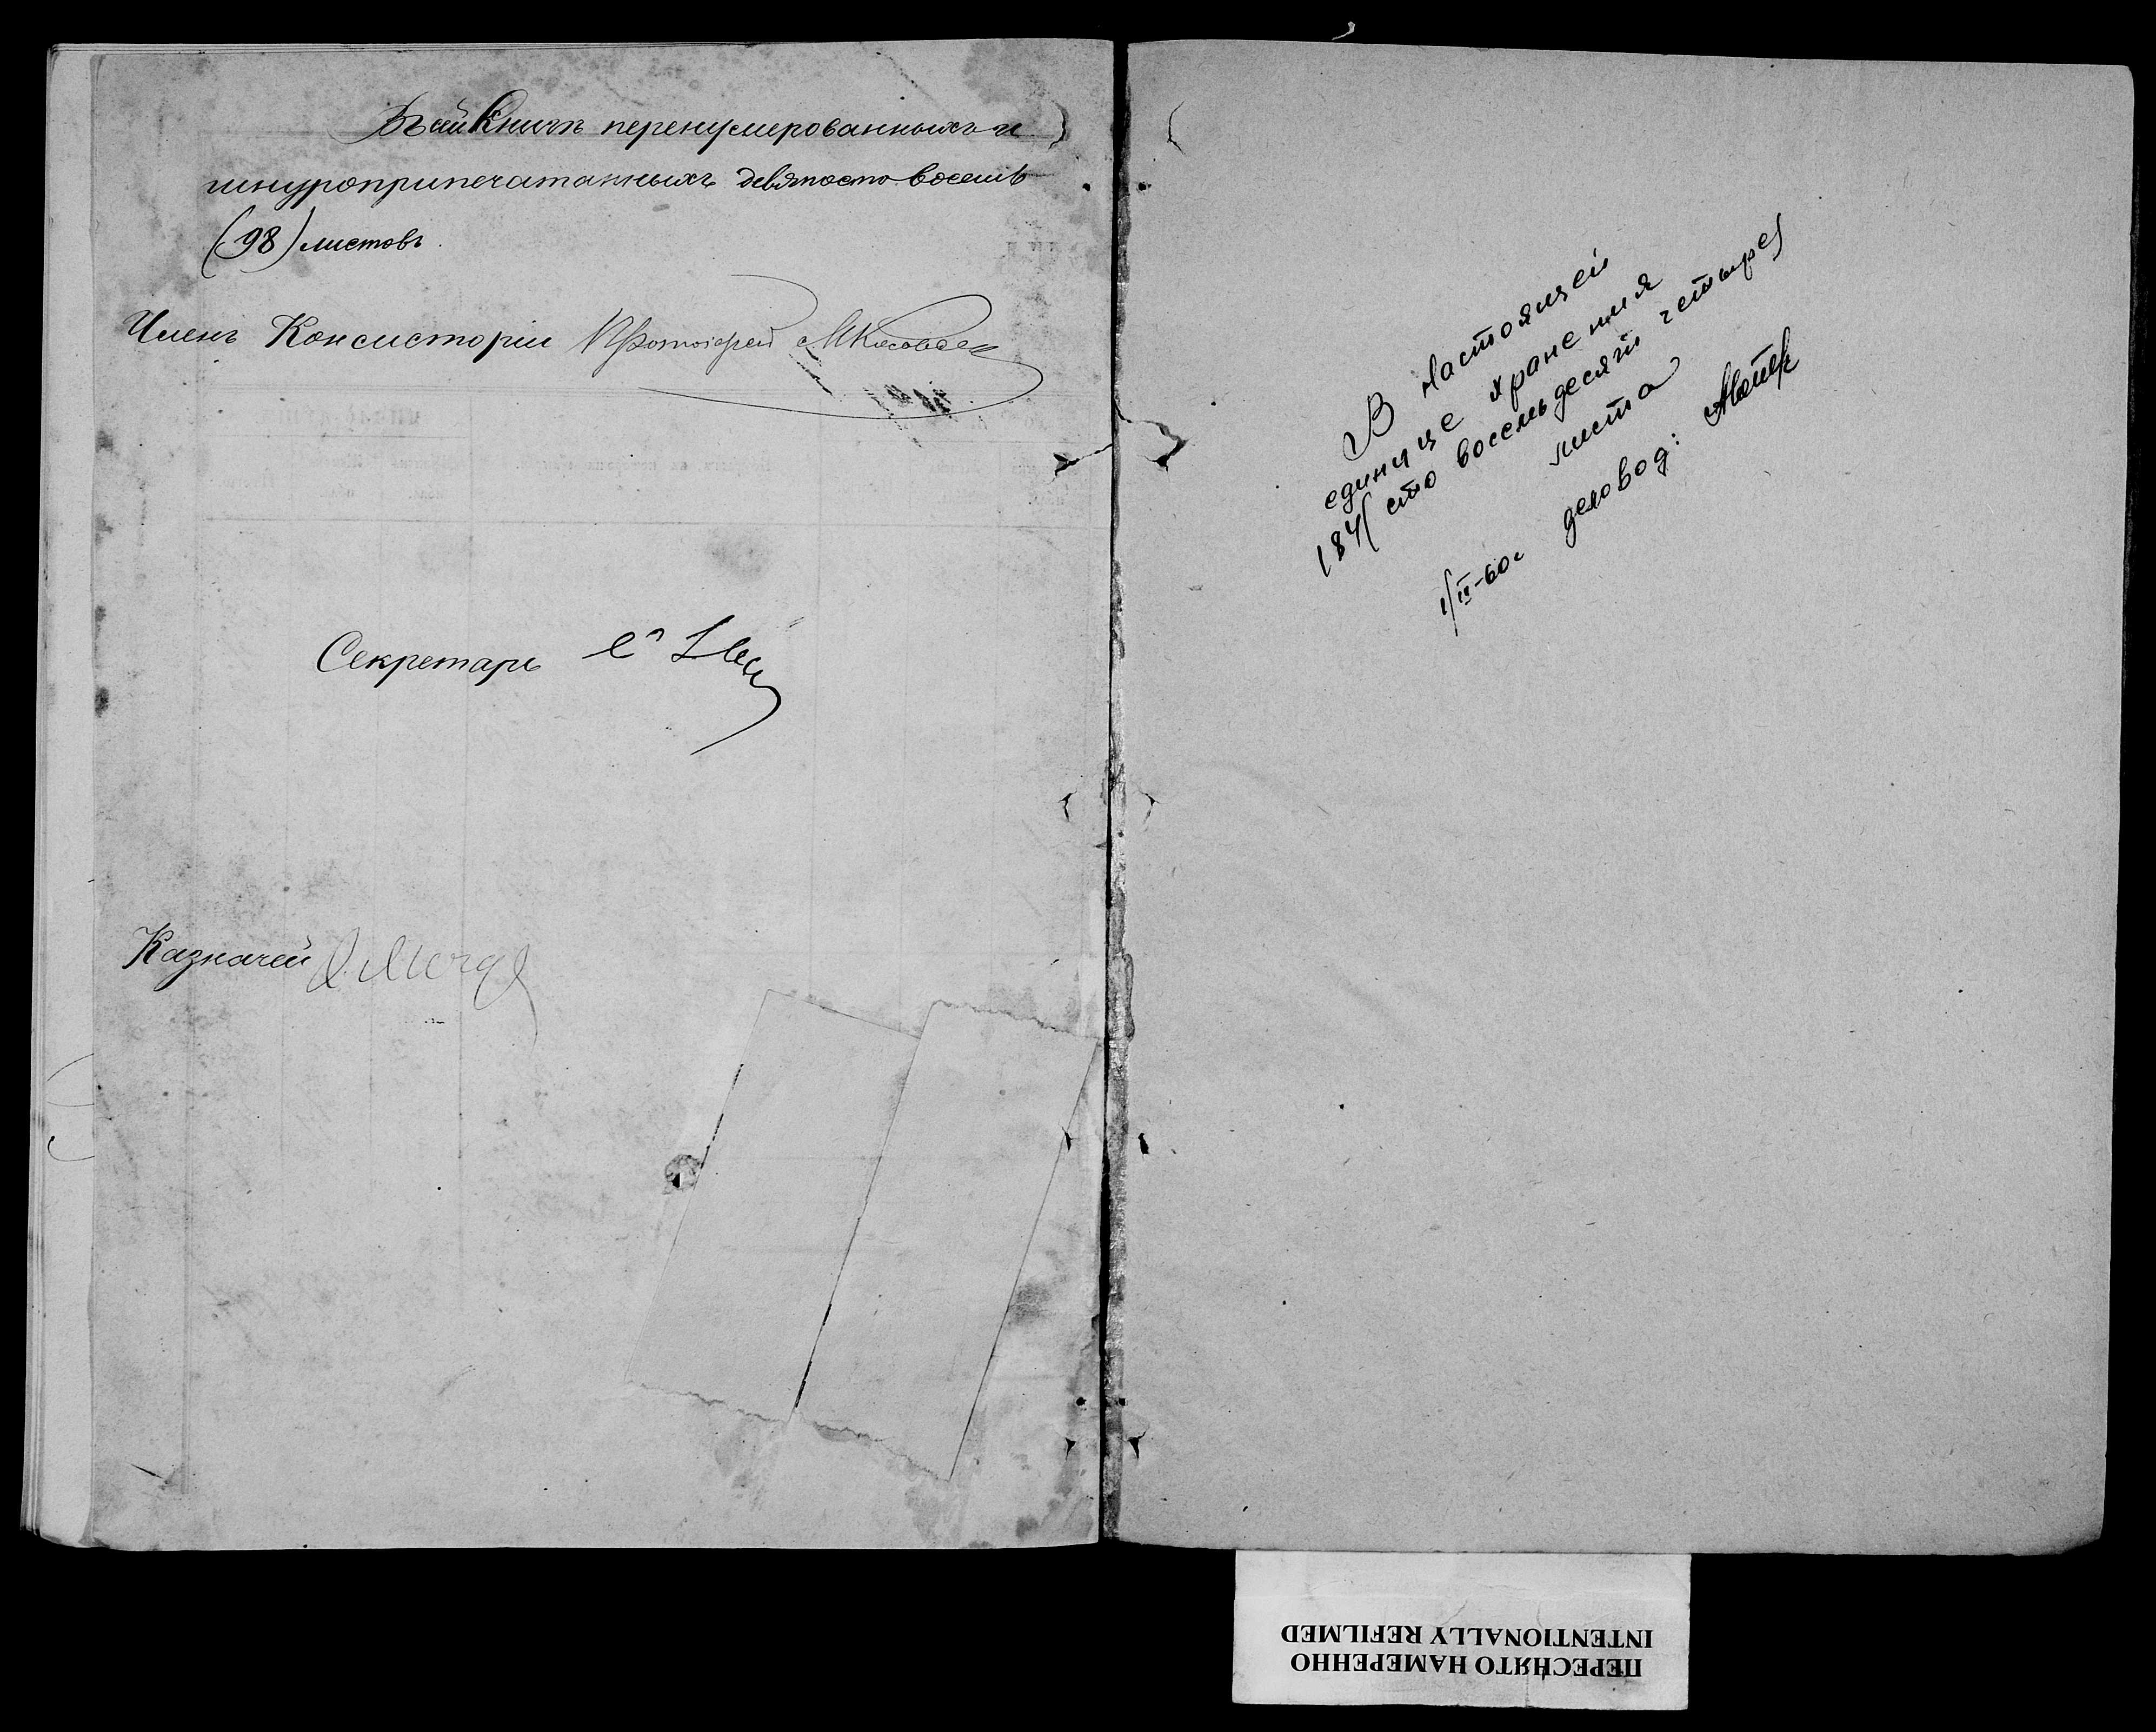 В сей Книгѣ перенумерованныхъ и
шнуроприпечатанныхъ девяносто восемь
(98) листовъ.
Членъ Консисторіи Протоіерей
Секретарь
Казначей
В настоящей
единице хранения
184 (сто восемьдесят четыре)
листа
1/II-60г деловод:
ПЕРЕСНЯТО НАМЕРЕННО
INTENTIONALLY REFILMED